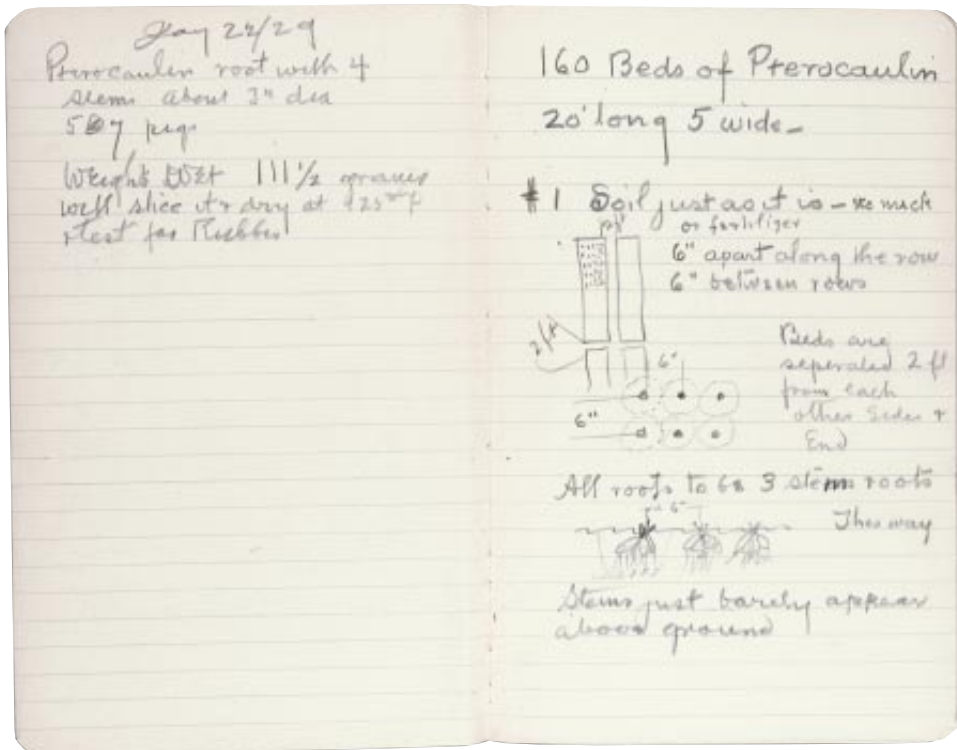 Jay 22/29
Pterocaulin root with 4
stems about 3" dia
Weight Wet 111 1/2 grams
will slice it & dry at
& test for Rubber
160 Beds of Pterocaulin
20' long 5 wide -
#1 Soil just as it is - no muck
or fertilizer
6" apart along the row
6" between rows
2 ft
6"
6"
Beds are
seperated 2 ft
from each
other Sides &
End
All roots to be 3 stem roots
6"
This way
Stems just barely appear
above ground